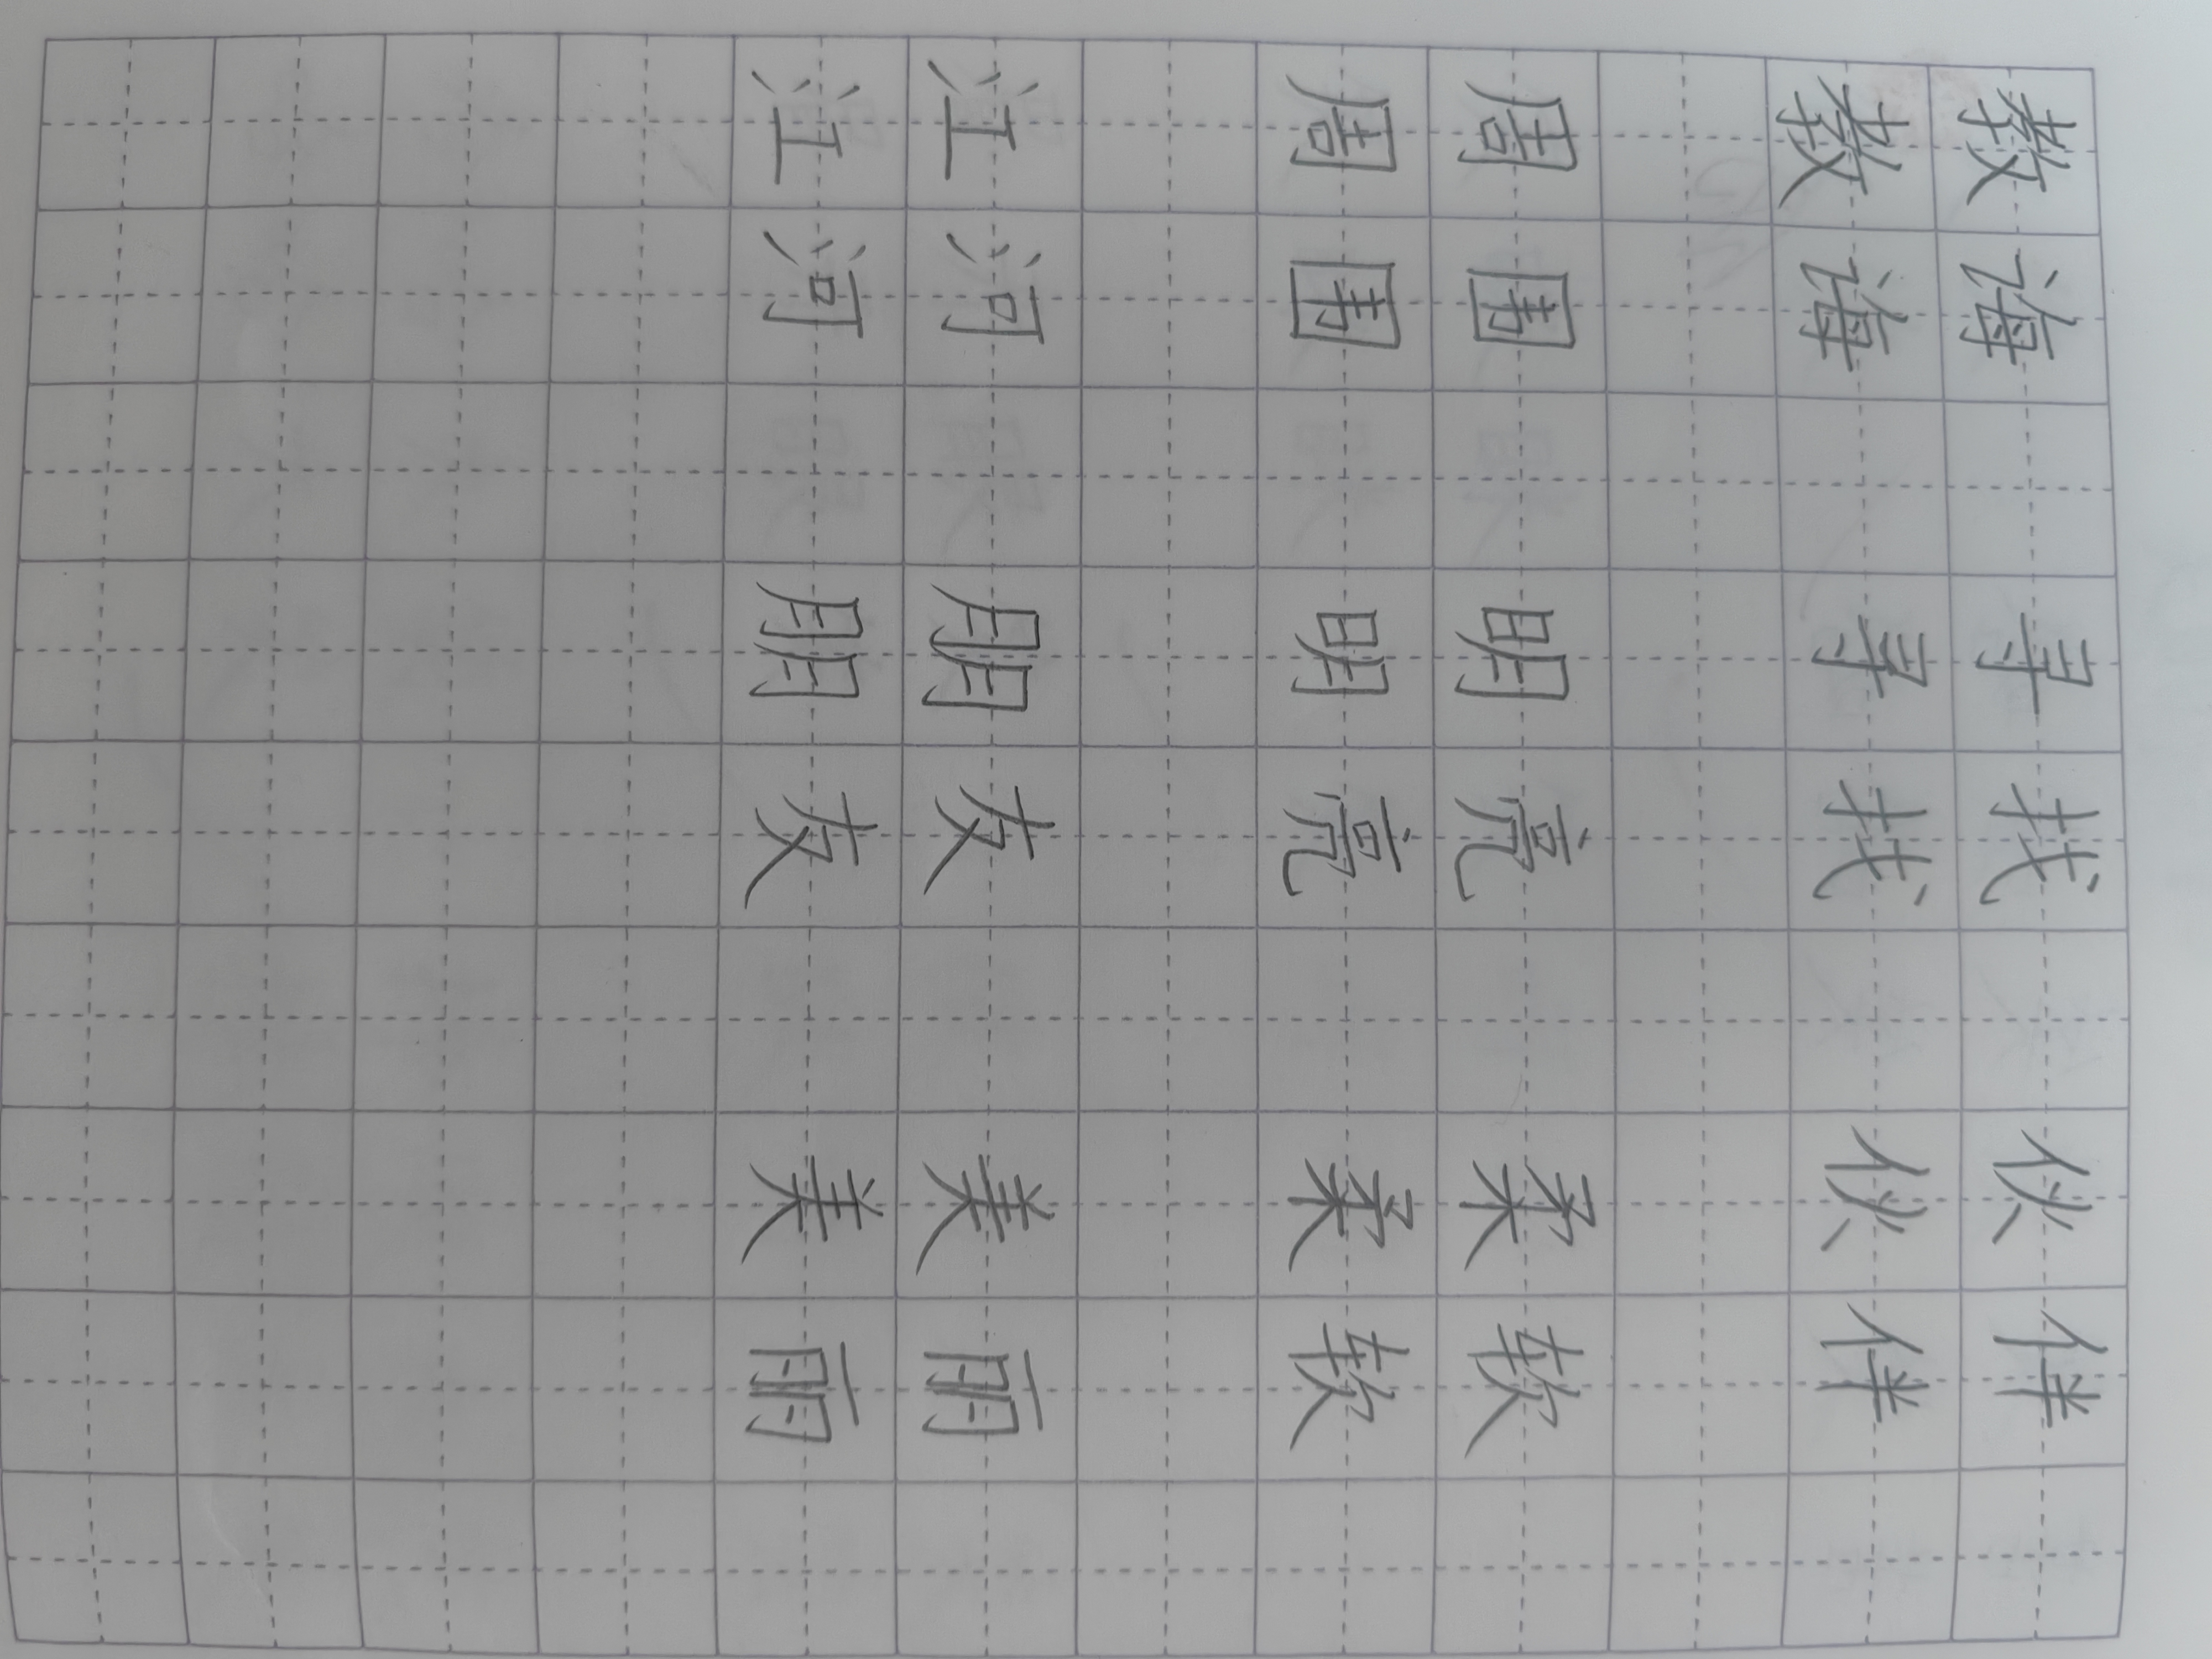 教诲 寻找 伙伴
教诲 寻找 伙伴
周围 明亮 柔软
周围 明亮 柔软
江河 朋友 美丽
江河 朋友 美丽